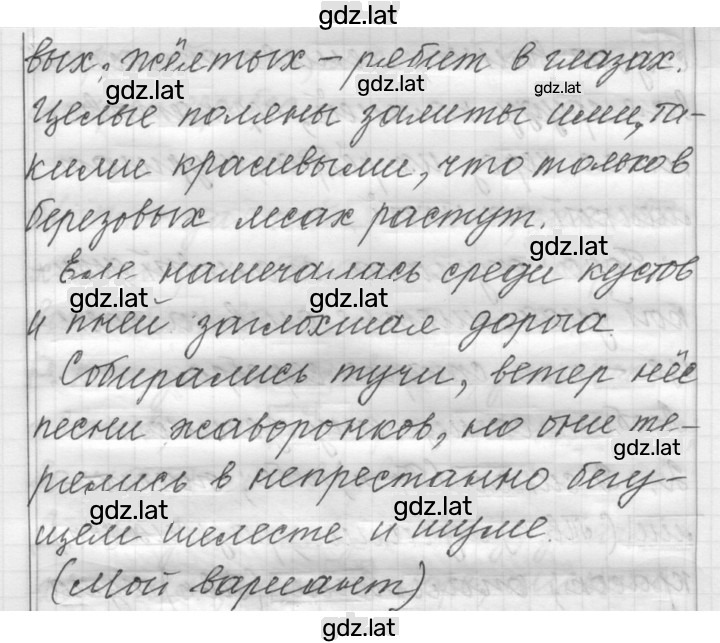 gdz.lat
вых, жёлтых – рябит в глазах.
gdz.lat gdz.lat gdz.lat
Целые поляны залиты ими, та-
кими красивыми, что только в
берёзовых лесах растут.
gdz.lat
Еле намечалась среди кустов
gdz.lat gdz.lat
и пней заглохшая дорога.
Собирались тучи, ветер нёс
песни жаворонков, но они те-
gdz.lat
рялись в непрестанно бегу-
gdz.lat gdz.lat
щем шелесте и шуме.
(Мой вариант)
gdz.lat